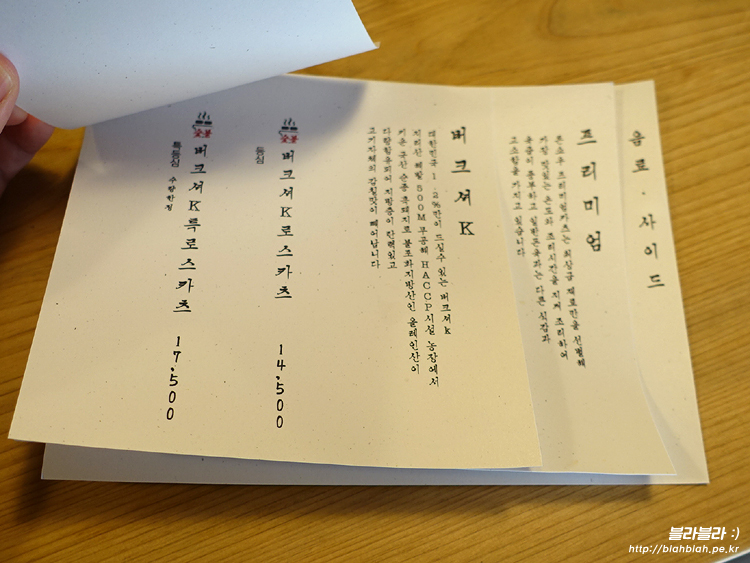 음료 · 사이드
프리미엄
돈오우 프리미엄카츠는 최상급 재료만을 선별해
가장 맛있는 온도와 조리시간을 지켜 조리하여
육즙이 풍부하고 일반돈육과는 다른 식감과
고소함을 가지고 있습니다
버크셔K
대한민국 1.2%만이 드실수 있는 버크셔k
지리산 해발 500M 무공해 HACCP시설 농장에서
키운 국산 순종 흑돼지로 불포화지방산인 올레인산이
다량함유되어 지방층이 탄력있고
고기자체의 감칠맛이 뛰어납니다
숯불
등심
버크셔K로스카츠 14,500
숯불
특등심 수량한정
버크셔K특로스카츠 17,500
블라블라 :)
http://blahblah.pe.kr